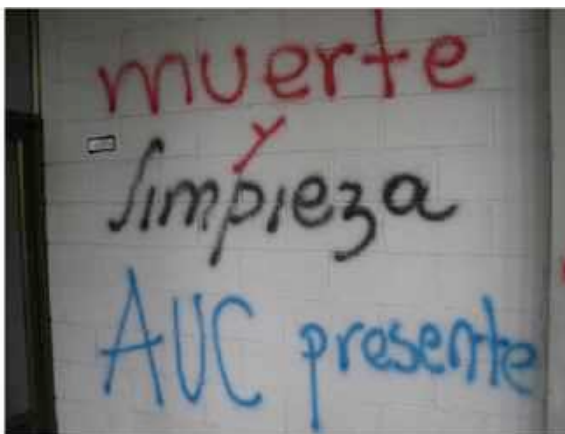 muerte
y
limpieza
AUC presente